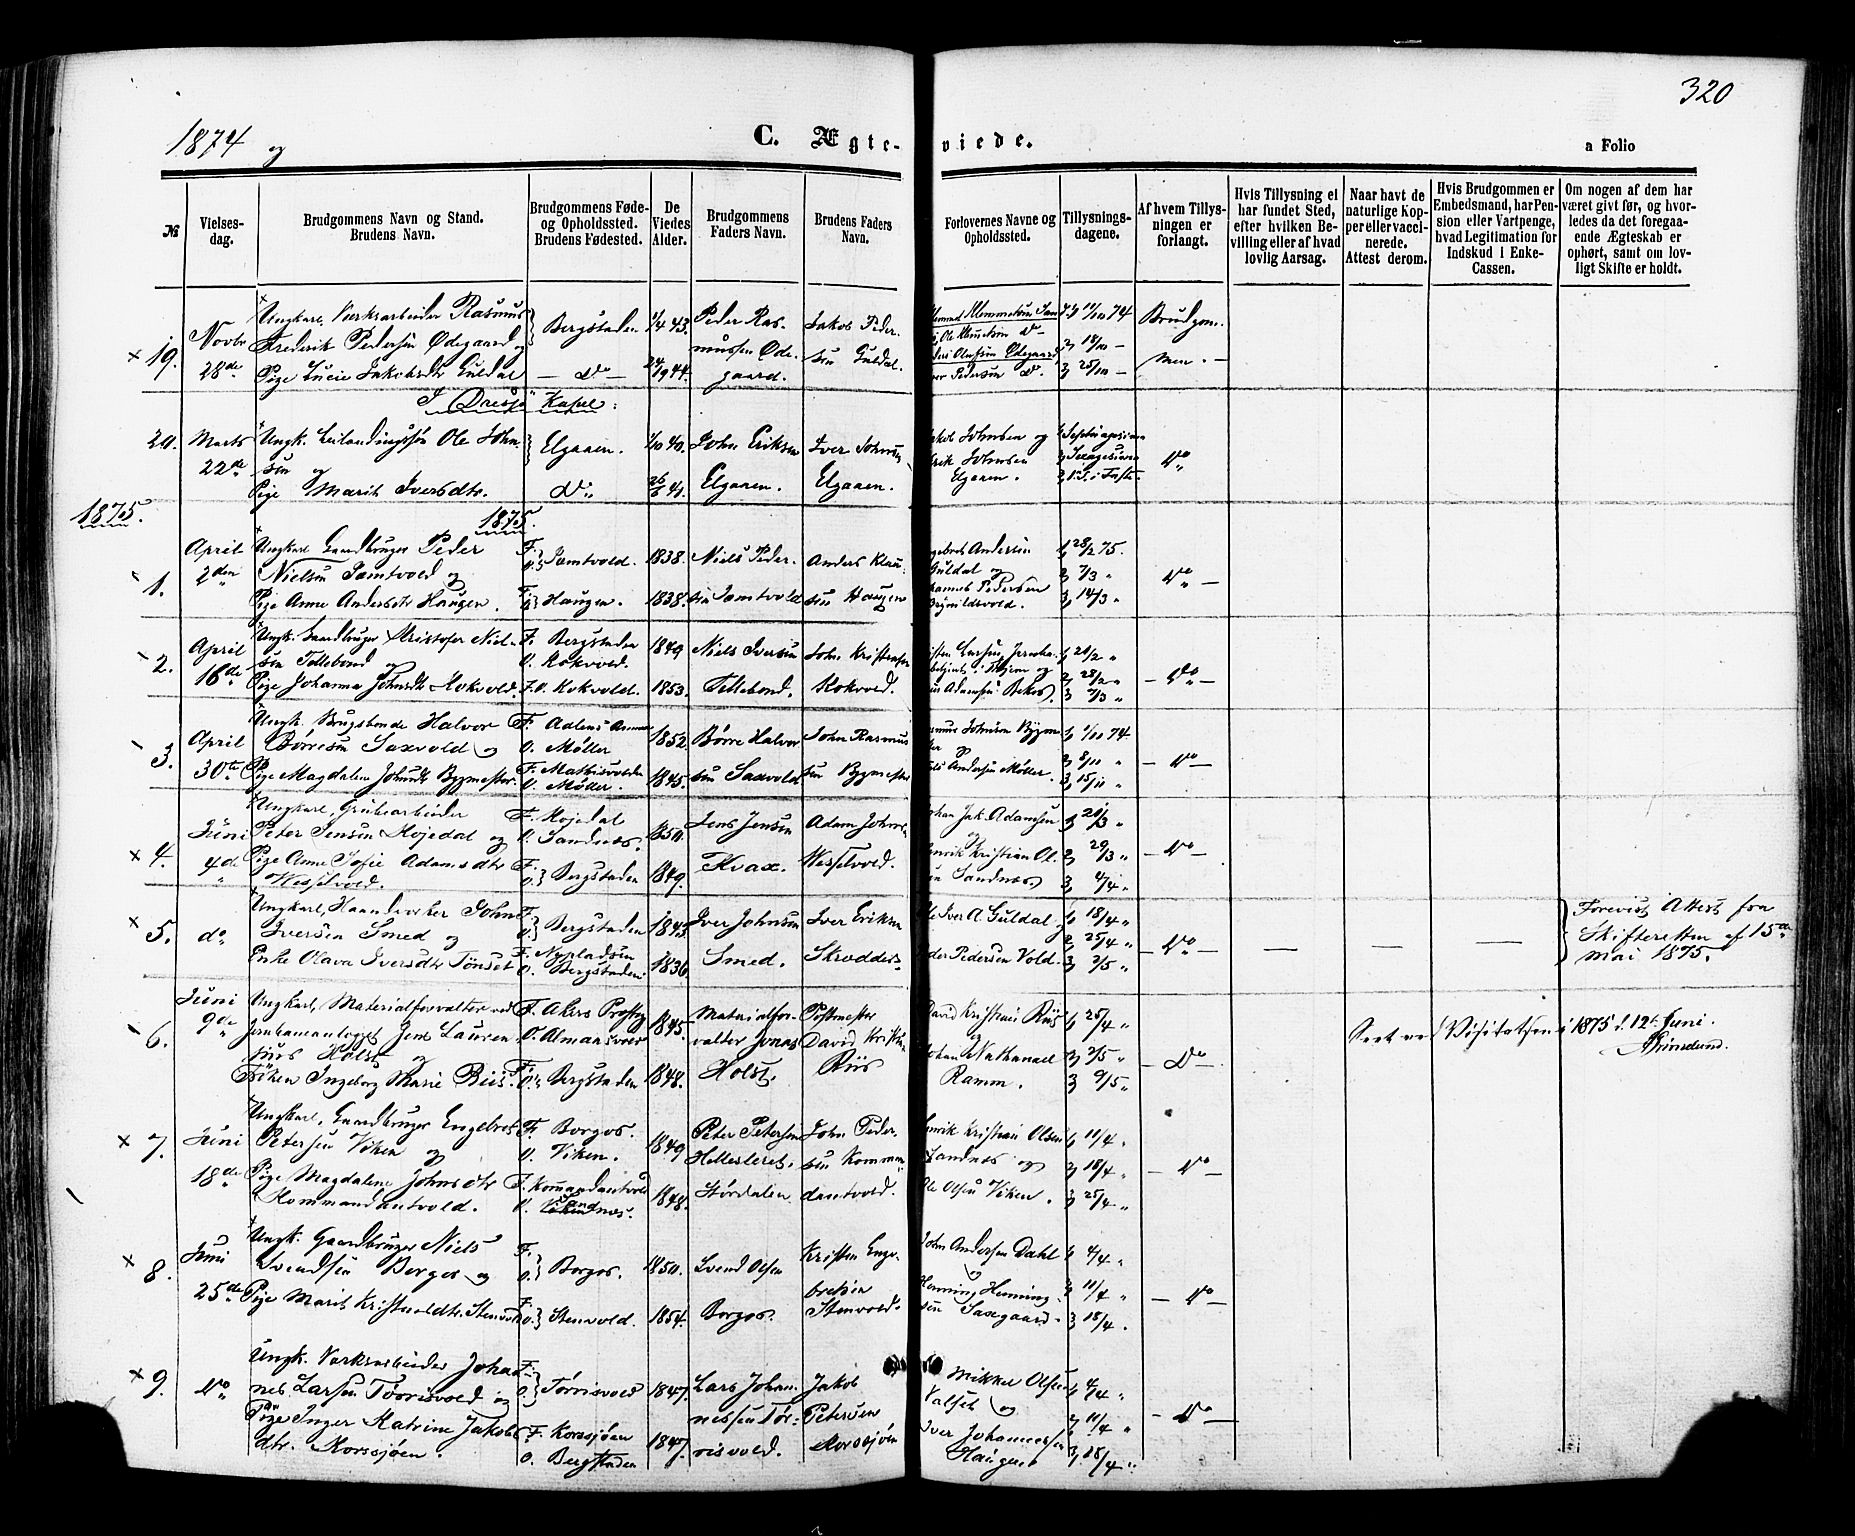 320
1874 og
C. Ægte-viede.
a Folio
№
Vielses-
dag.
Brudgommens Navn og Stand.
Brudens Navn.
Brudgommens Føde-
og Opholdssted.
Brudens Fødested.
De
Viedes
Alder.
Brudgommens
Faders Navn.
Brudens Faders
Navn.
Forlovernes Navne og
Opholdssted.
Tillysnings-
dagene.
Af hvem Tillys-
ningen er
forlangt.
Hvis Tillysning ei
har fundet Sted,
efter hvilken Be-
villing eller af hvad
lovlig Aarsag.
Naar havt de
naturlige Kop-
per eller vacci-
nerede.
Attest derom.
Hvis Brudgommen er
Embedsmand, har Pen-
sion eller Vartpenge,
hvad Legitimation for
Indskud i Enke-
Cassen.
Om nogen af dem har
været givt før, og hvor-
ledes da det foregaa-
ende Ægteskab er
ophørt, samt om lov-
ligt Skifte er holdt.
× 19.
Novbr
28de
Ungkarl, Værksarbeider Rasmus
Frederik Pedersen Ødegaard og
Pige Lucie Jakobsdtr Guldal
Bergstaden
— Do
1/4 43.
24/9 44.
Peder Ras-
mussen Øde-
gaard.
Jakob Peder-
sen Guldal.
Ole Knudsen Do
Olufsen Ødegaard
Pedersen Do.
1, 11/10 74
2, 18/10 —
3, 25/10 —
Brudgom-
men. —
I Brekke Kapel.
20.
Marts
22de
Ungk. Leilændingssøn Ole John-
sen og
Pige Marit Iversdtr.
Elgaaen.
Do
1/10 40.
26/6 41.
John Eriksen
Elgaaen.
Iver Johnsen
Elgaaen.
Jakob Johnsen og
Erik Johnsen
Elgaaen.
1, Septuagesima
2, Sexagesima
3, 1. S. i Faste.
Do
1875.
1875.
1.
April
2den
Ungkarl Gaardbruger Peder
Nielsen Tamtvold og
Pige Anne Andersdtr Haugen.
F.
O. Tamtvold.
F.
O. Haugen.
1838.
1838.
Niels Peder-
sen Tamtvold
Anders Klau-
sen Haugen
Engebret Andersen
Guldal og
Johannes Pedersen
Brynildsvold.
1, 28/2 75.
2, 7/3 "
3, 14/3 "
Do —
2.
April
16de
Ungk. Gaardbruger Kristofer Niel-
sen Tollebond og
Pige Johanna Johnsdtr Kokvold.
F. Bergstaden
O. Kokvold.
F.O. Kokvold.
1849
1853.
Niels Iversen
Tollebond.
John Kristensen
Kokvold.
1, 21/2 "
2, 28/2 "
3, 7/3 "
— Do —
3.
April
30te
Ungk. Brugsbonde Halvor
Børresen Saxvold og
Pige Magdalene Johnsdtr Bygmester.
F.
O. Møller
F. Mathisvolden
O. Møller.
1852
1845.
Børre Halvor-
sen Saxvold
John Rasmus-
sen Bygmester
Rasmus Johnsen Bygm-
ester og
Nils Andersen Møller.
1, 1/11 74.
2, 8/11 "
3, 15/11 "
— Do —
× 4.
Juni
4de
Ungkarl, Grubearbeider
Peter Jensen Hojedal og
Pige Anne Sofie Adamsdtr
Wesselvold.
F. Hojedal
O. Sandnæs.
F.
O. Bergstaden
1850.
1849.
Jens Jensen
Kvax.
Adam Johnsen
Wesselvold.
Johan Jak. Adamsen
og
Henrik Kristian Ol-
sen Sandnæs.
1, 21/3 "
2, 29/3 "
3, 4/4 "
— Do —
× 5.
do
Ungkarl, Haandverker John
Iversen Smed og
Enke Olava Iversdtr Tønset
F.
O. Bergstaden
F. Nypladsen
O. Bergstaden
1843.
1836
Iver Johnsen
Smed.
Iver Eriksen
Skrødder.
Ole Iver A. Guldal og
Peder Pedersen Vold.
1, 18/4 "
2, 25/4 "
3, 2/5 "
— Do —
—
—
—
Forevist Attest fra
Skifteretten af 15de
Mai 1875.
6.
Juni
9de
Ungkarl, Materialforvalter ved
Jernbaneanlægget Jens Lauren-
tius Holst og
Frøken Ingeborg Marie Riis.
F. Akers Prestegj.
O. Aamaasvold
F.
O. Bergstaden
1845.
1848.
Materialfor-
valter Jonas
Holst.
Postmester
David Kristian
Riis
David Kristian Riis
Johan Nathanael
Ramm.
1, 25/4 "
2, 2/5 "
3, 9/5 "
— Do —
Seet ved Visitatsen i 1875 d. 12. Juni.
Grimelund.
× 7.
Juni
18de
Ungkarl, Gaardbruger Engebret
Petersen Viken og
Pige Magdalene Johnsdtr
Kommandantvold.
F. Borgos.
O. Viken.
F. Kommandantvold
O. Sandnæs.
1849
1848.
Peter Petersen
Hellesleret.
Størdalen
John Peder-
sen Komman-
dantvold.
Henrik Kristian Olsen
Sandnæs og
Ole Olsen Viken.
1, 11/4 "
2, 18/4 "
3, 25/4 "
— Do —
× 8.
Juni
25de
Ungk. Gaardbruger Niels
Svendsen Borgos og
Pige Marit Kristensdtr. Stenvold
F.
O. Borgos.
F.
O. Stenvold.
1850.
1854.
Svend Olsen
Borgos.
Kristen Enge-
bretsen
Stenvold.
John Andersen Dahl
og
Henning Henning-
sen Saxegaard.
1, 4/4 "
2, 11/4 "
3, 18/4 "
— Do —
× 9.
Do
Ungk. Værksarbeider Johan-
nes Larsen Tørrisvold og
Pige Inger Katrine Jakobs-
dtr. Korssjøen.
F.
O. Tørrisvold
F. Korssjøen
O. Bergstaden
1847.
1847.
Lars Johan-
nessen Tør-
risvold.
Jakob
Petersen
Korssjøen
Mikkel Olsen
Valset og
Iver Johannessen
Haugen
1, 4/4 "
2, 11/4 "
3, 18/4 "
— Do —